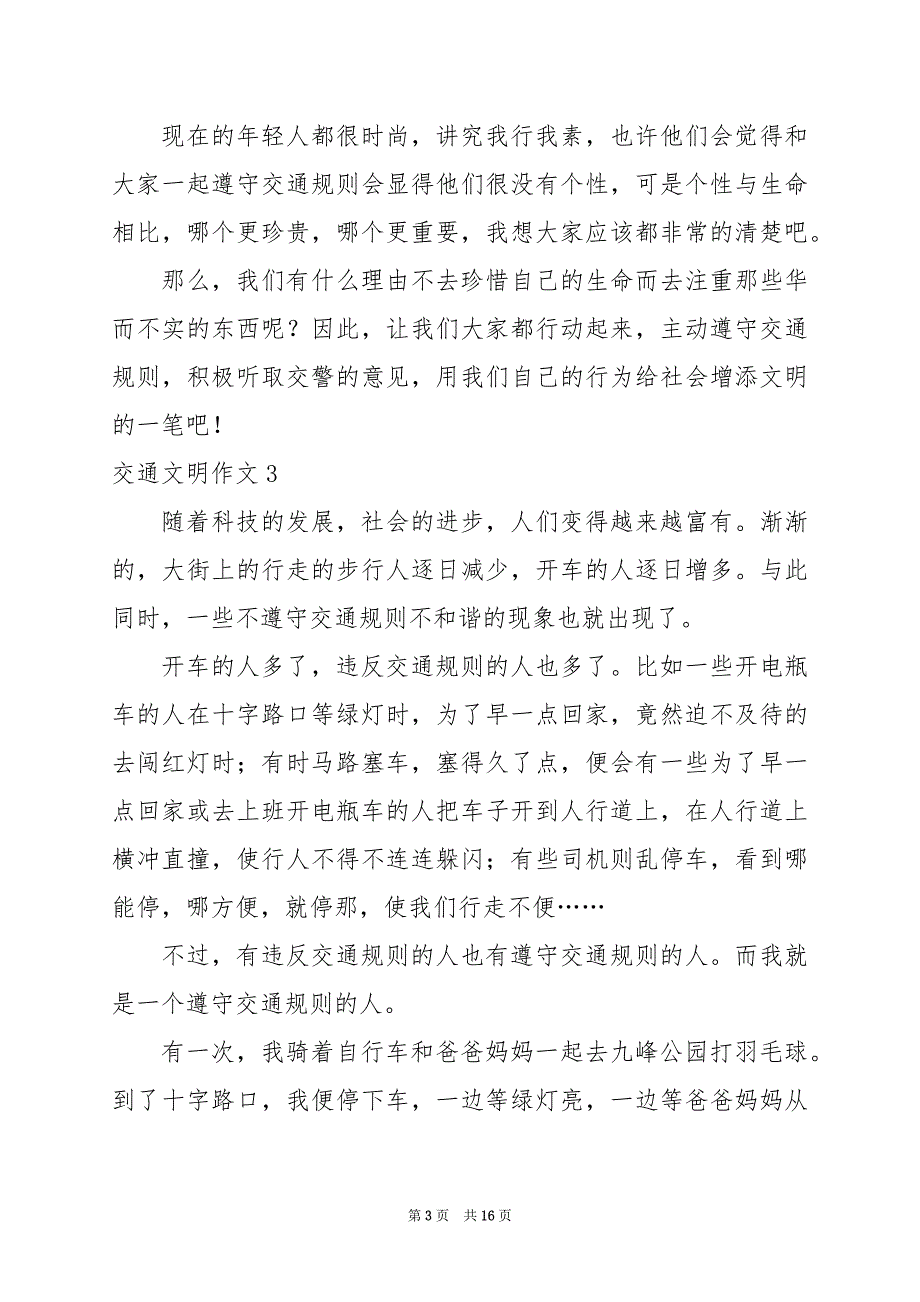 现在的年轻人都很时尚，讲究我行我素，也许他们会觉得和
大家一起遵守交通规则会显得他们很没有个性，可是个性与生命
相比，哪个更珍贵，哪个更重要，我想大家应该都非常的清楚吧。
那么，我们有什么理由不去珍惜自己的生命而去注重那些华
而不实的东西呢？因此，让我们大家都行动起来，主动遵守交通
规则，积极听取交警的意见，用我们自己的行为给社会增添文明
的一笔吧！
交通文明作文3
随着科技的发展，社会的进步，人们变得越来越富有。渐渐
的，大街上的行走的步行人逐日减少，开车的人逐日增多。与此
同时，一些不遵守交通规则不和谐的现象也就出现了。
开车的人多了，违反交通规则的人也多了。比如一些开电瓶
车的人在十字路口等绿灯时，为了早一点回家，竟然迫不及待的
去闯红灯时；有时马路塞车，塞得久了点，便会有一些为了早一
点回家或去上班开电瓶车的人把车子开到人行道上，在人行道上
横冲直撞，使行人不得不连连躲闪；有些司机则乱停车，看到哪
能停，哪方便，就停那，使我们行走不便……
不过，有违反交通规则的人也有遵守交通规则的人。而我就
是一个遵守交通规则的人。
有一次，我骑着自行车和爸爸妈妈一起去九峰公园打羽毛球。
到了十字路口，我便停下车，一边等绿灯亮，一边等爸爸妈妈从
第 3 页 共 16 页